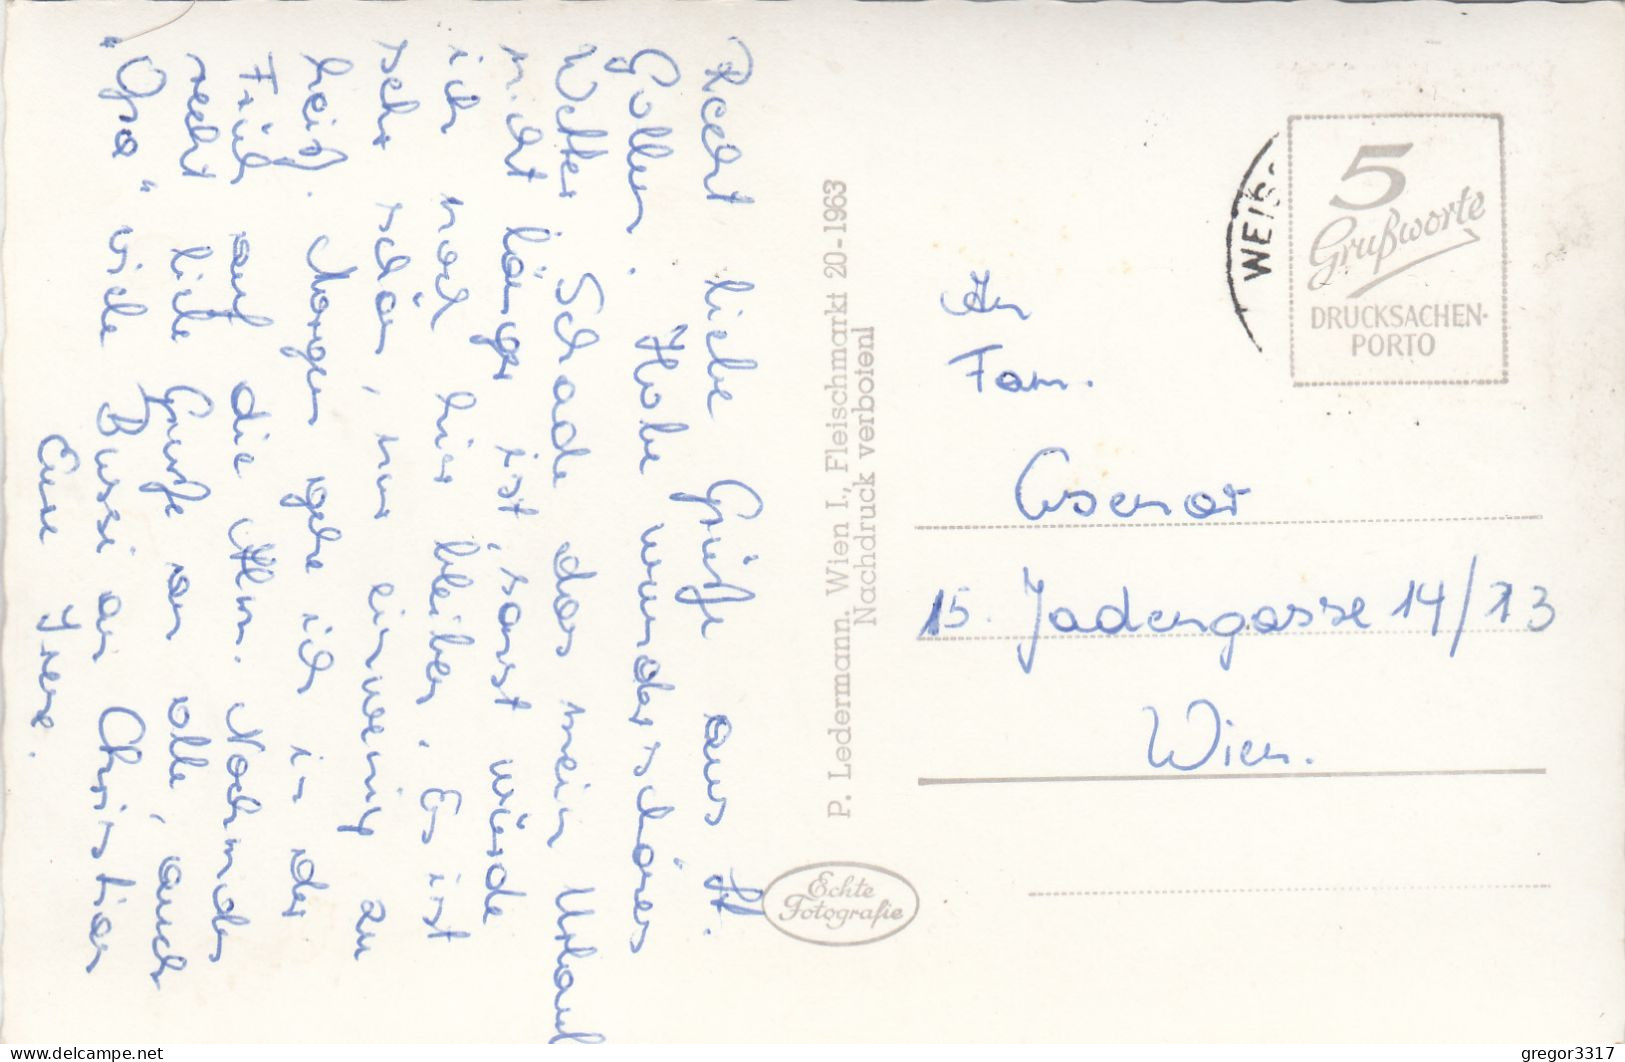 Recht liebe Grüße aus St.
Gallen. Habe wunderschönes
Wetter. Schade das mein Urlaub
nicht länger ist, sonst würde
ich noch hier bleiben. Es ist
sehr schön, nur ein wenig zu
heiß. Morgen gehe ich in der
Früh auf die Alm. Nochmals
recht liebe Grüße an alle, auch
"Opa" viele Bussi an Christian
Eure Irene.
P. Ledermann. Wien I., Fleischmarkt 20-1963
Nachdruck verboten!
Echte
Fotografie
WEIS
5
Grußworte
DRUCKSACHEN-
PORTO
An
Fam.
15. Jadengasse 14/13
Wien.
delcampe.net
gregor3317